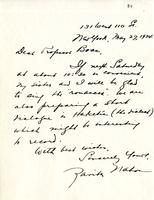 131 West 110 St.
New York, May 29, 1930.
Dear Professor Boas,
If next Saturday
at about 10: is convenient,
my sister and I will be glad
to sing the romances. We are
also preparing a short
dialogue in Haketia (the dialect)
which might be interesting
to record.
With best wishes,
Sincerely yours,